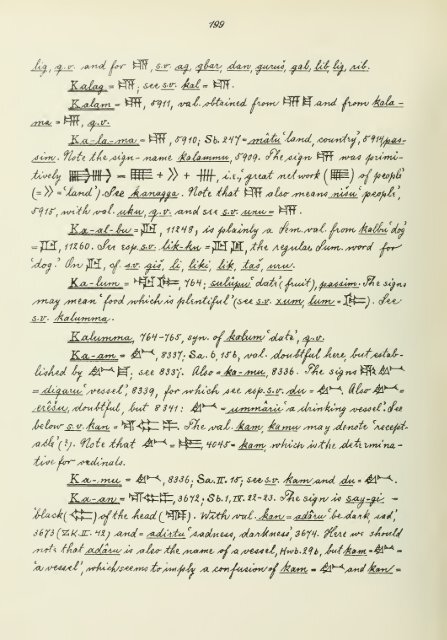 199
lig, q.v. and for 𒆗, s.v. ag, gbar, dan, guruš, gal, lib, lig, rib.
Kalag = 𒆗; see s.v. kal = 𒆗.
Kalam = 5911, val. obtained from and from kala-
ma = q.v.
Ka-la-ma = 5910; Sb. 247 = mâtu 'land, country', 5914 pas-
sim. Note the sign-name kalammu, 5909. The sign was primi-
tively = + » + i.e., 'great network of people'
(= » = 'land'). See kanagga. Note that also means nišu 'people',
5915, with val. uku, q.v. and see s.v. unu =
Ka-al-bu = 11248, is plainly a Sem. val. from kalbu 'dog'
= 11260. See esp. s.v. lik-ku = the regular Sum. word for
'dog.' On cf. s.v. giš, li, liki, lik, taš, uru.
Ka-lum = 764; suluppu 'date (fruit), passim. The signs
may mean 'food which is plentiful' (see s.v. xum, lum = ). See
s.v. kalumma.
Kalumma, 764-765, syn. of kalum 'date', q.v.
Ka-am = 8337; Sa. 6, 156, val. doubtful here, but estab-
lished by see 8337. Also = ka-mu, 8336. The signs
= digaru 'vessel', 8339, for which see esp. s.v. du = Also =
erêšu, doubtful, but 8341: = ummâru 'a drinking vessel'. See
below s.v. kan = The val. kam, kamu may denote 'recept-
acle' (?). Note that = 4045 = kam, which is the determina-
tive for ordinals.
Ka-mu = 8336; Sa. II. 15; see s.v. kam and du =
Ka-an = 3672, Sb. 1, IV. 22-23. The sign is sag-gi -
'black of the head With val. kan = adâru 'be dark, sad',
3673 (ZK. II. 42) and = adirtu 'sadness, darkness', 3674. Here we should
note that adâru is also the name of a vessel, Hwb. 29b, but kam =
'a vessel', which seems to imply a confusion of kam = and kan =